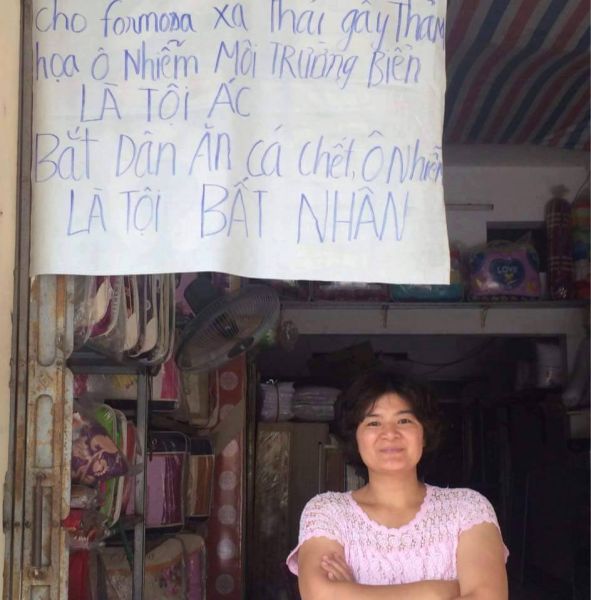 cho formosa xả Thải gây Thảm
họa ô Nhiễm Môi TRƯỜNG Biển
LÀ TỘI ÁC
BẮT DÂN ĂN CÁ chết, Ô Nhiễm
LÀ TỘI BẤT NHÂN
LOVE